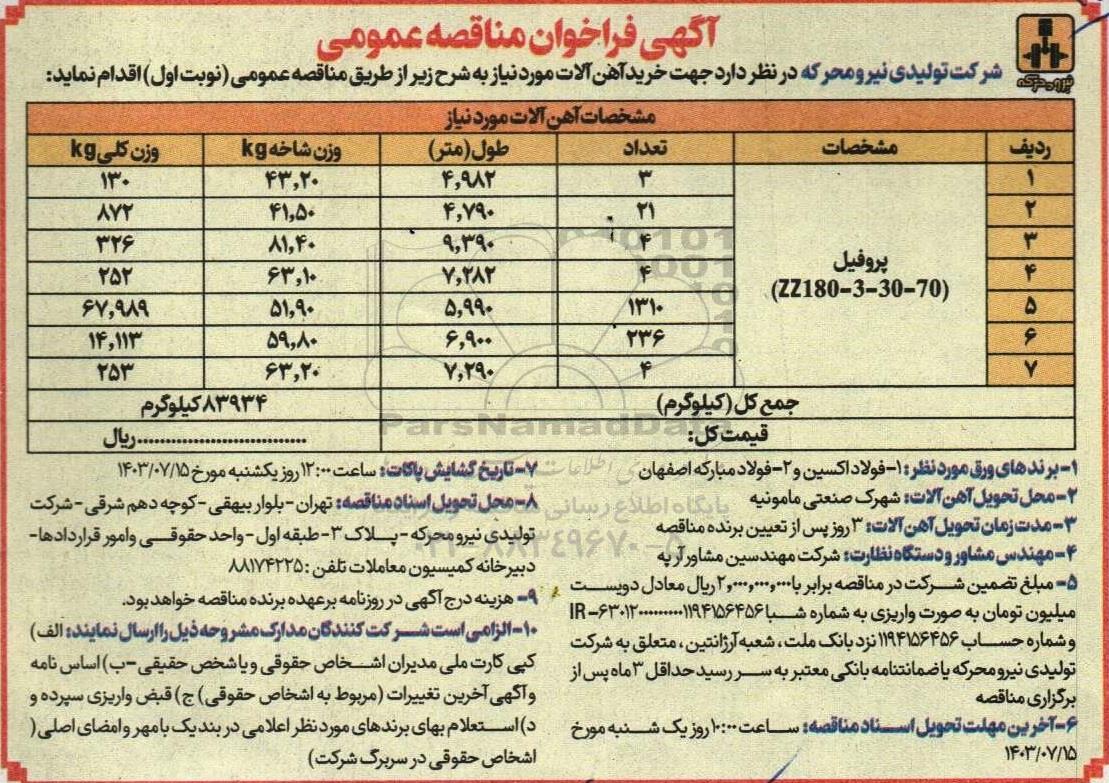 آگهی فراخوان مناقصه عمومی
نیرومحرکه
شرکت تولیدی نیرومحرکه در نظر دارد جهت خرید آهن آلات مورد نیاز به شرح زیر از طریق مناقصه عمومی (نوبت اول) اقدام نماید:
مشخصات آهن آلات مورد نیاز
ردیف مشخصات تعداد طول (متر) وزن شاخه kg وزن کلی kg
۱ ۳ ۴,۹۸۲ ۴۳,۲۰ ۱۳۰
۲ ۲۱ ۴,۷۹۰ ۴۱,۵۰ ۸۷۲
۳ ۴ ۹,۳۹۰ ۸۱,۴۰ ۳۲۶
پروفیل
(ZZ180-3-30-70)
۴ ۴ ۷,۲۸۲ ۶۳,۱۰ ۲۵۲
۵ ۱۳۱۰ ۵,۹۹۰ ۵۱,۹۰ ۶۷,۹۸۹
۶ ۲۳۶ ۶,۹۰۰ ۵۹,۸۰ ۱۴,۱۱۳
۷ ۴ ۷,۲۹۰ ۶۳,۲۰ ۲۵۳
جمع کل (کیلوگرم) ۸۳۹۳۴ کیلوگرم
قیمت کل: ..............................ریال
ParsNamadData
پایگاه اطلاع رسانی
۰۲۱-۸۸۳۴۹۶۷۰-۵
۱- برندهای ورق مورد نظر: ۱- فولاد اکسین و ۲- فولاد مبارکه اصفهان
۲- محل تحویل آهن آلات: شهرک صنعتی مامونیه
۳- مدت زمان تحویل آهن آلات: ۳ روز پس از تعیین برنده مناقصه
۴- مهندس مشاور و دستگاه نظارت: شرکت مهندسین مشاور آرپه
۵- مبلغ تضمین شرکت در مناقصه برابر با ۲,۰۰۰,۰۰۰,۰۰۰ ریال معادل دویست
میلیون تومان به صورت واریزی به شماره شبا
و شماره حساب ۱۱۹۴۱۵۶۴۵۶ نزد بانک ملت، شعبه آرژانتین، متعلق به شرکت
تولیدی نیرومحرکه یا ضمانتنامه بانکی معتبر به سر رسید حداقل ۳ ماه پس از
برگزاری مناقصه
۶- آخرین مهلت تحویل اسناد مناقصه: ساعت ۱۰:۰۰ روز یک شنبه مورخ
۱۴۰۳/۰۷/۱۵
۷- تاریخ گشایش پاکات: ساعت ۱۲:۰۰ روز یکشنبه مورخ ۱۴۰۳/۰۷/۱۵
۸- محل تحویل اسناد مناقصه: تهران - بلوار بیهقی - کوچه دهم شرقی - شرکت
تولیدی نیرومحرکه - پلاک ۳ - طبقه اول - واحد حقوقی وامور قراردادها -
دبیرخانه کمیسیون معاملات تلفن: ۸۸۱۷۴۲۲۵
۹- هزینه درج آگهی در روزنامه برعهده برنده مناقصه خواهد بود.
۱۰- الزامی است شرکت کنندگان مدارک مشروحه ذیل را ارسال نمایند: الف)
کپی کارت ملی مدیران اشخاص حقوقی و یا شخص حقیقی - ب) اساس نامه
و آگهی آخرین تغییرات (مربوط به اشخاص حقوقی) ج) قبض واریزی سپرده و
د) استعلام بهای برندهای مورد نظر اعلامی در بند یک با مهر و امضای اصلی (
اشخاص حقوقی در سربرگ شرکت)